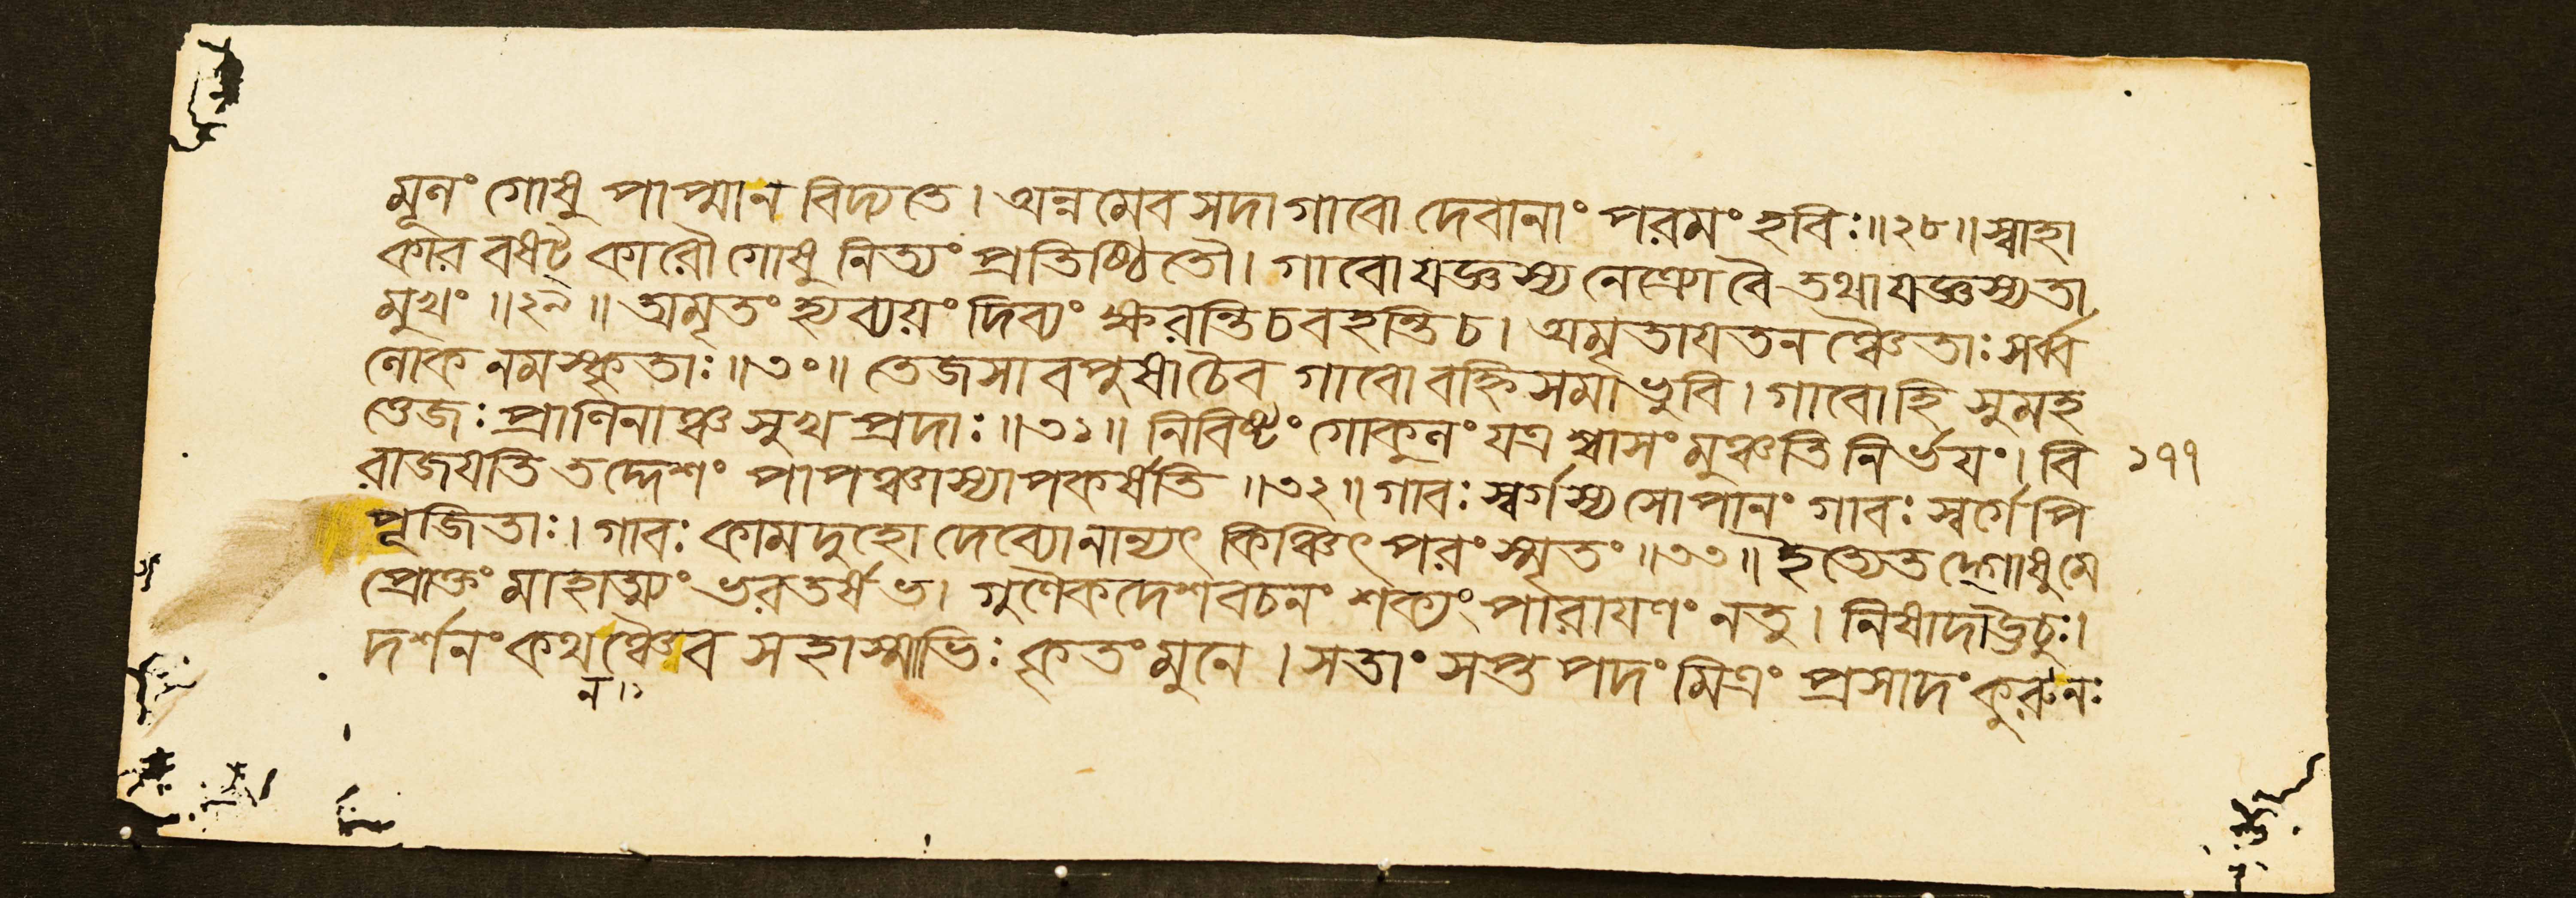 মূলং গোষু পাপ্মান বিদ্যতে। অন্নমেব সদা গাবো দেবানাং পরমং হবিঃ॥২৮॥ স্বাহা
কার বষট্ কারৌ গোষু নিত্যং প্রতিষ্ঠিতৌ। গাবো যজ্ঞস্য নেত্র্যো বৈ তথা যজ্ঞস্য তা
মুখং ॥২৯॥ অমৃতং হ্যব্যয়ং দিব্যং ক্ষরন্তি চ বহন্তি চ। অমৃতায়তনঞ্চৈতাঃ সর্ব্ব
লোক নমস্কৃতাঃ॥৩০॥ তেজসা বপুষা চৈব গাবো বহ্নিসমা ভুবি। গাবো হি সুমহ
ত্তেজঃ প্রাণিনাঞ্চ সুখ প্রদাঃ॥৩১॥ নিবিষ্টং গোকুলং যত্র শ্বাসং মুঞ্চতি নির্ভয়ং। বি
রাজয়তি তদ্দেশং পাপঞ্চাস্যাপকর্ষতি ॥৩২॥ গাবঃ স্বর্গস্য সোপানং গাবঃ স্বর্গেপি
পূজিতাঃ। গাবঃ কামদুহো দেব্যো নান্যৎ কিঞ্চিৎ পরং স্মৃতং ॥৩৩॥ ইত্যেতদ্গোষু মে
প্রোক্তং মাহাত্ম্যং ভরতর্ষভ। গুণৈকদেশবচনং শক্যং পারায়ণং নতু। নিষাদা ঊচুঃ।
দর্শনং কথনঞ্চৈব সহাস্মাভিঃ কৃতং মুনে । সতাং সপ্ত পদং মিত্রং প্রসাদং কুরু নঃ
ন॥
১৭৭